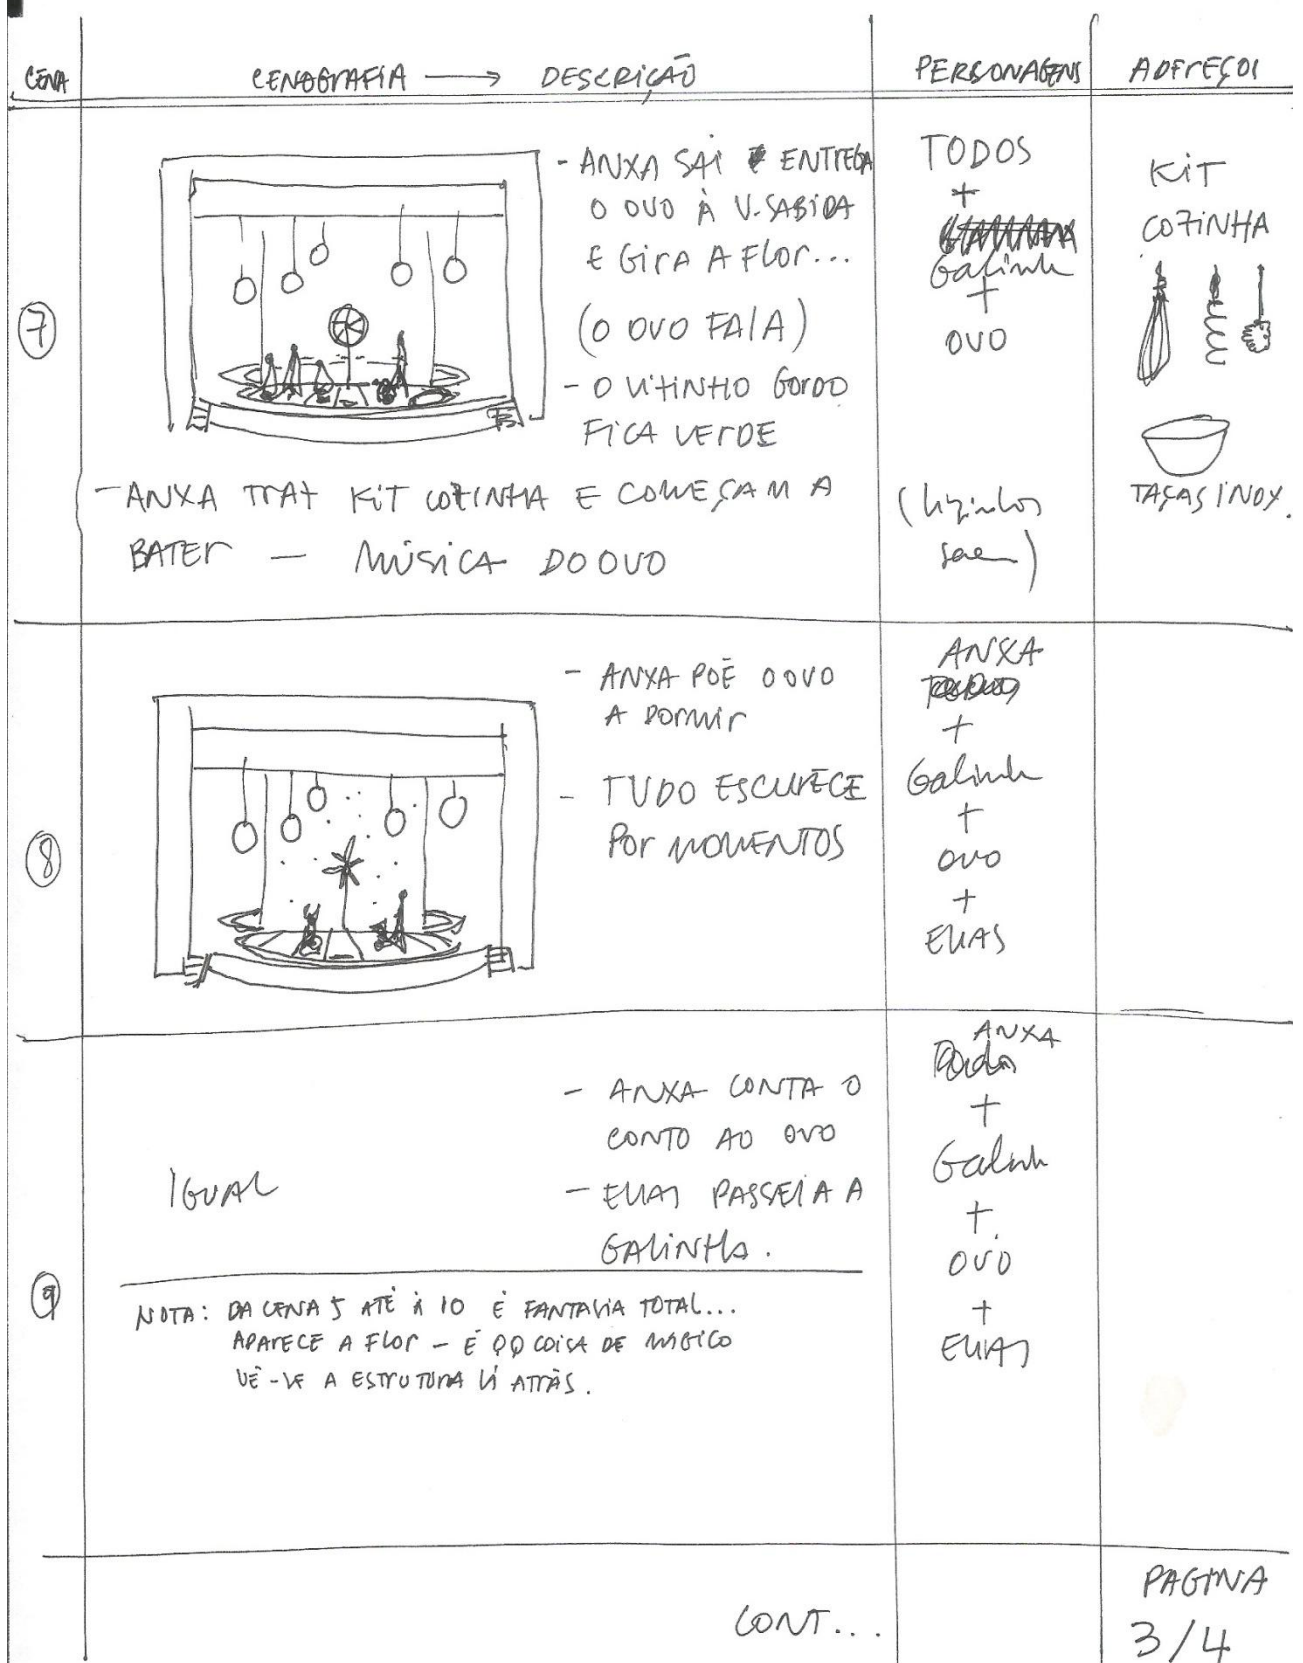 CENA
CENOGRAFIA → DESCRIÇÃO
PERSONAGENS
ADEREÇOS
7
- ANXA SAI E ENTREGA
O OVO À V. SABIDA
E GIRA A FLOR...
(O OVO FALA)
- O VITINHO GORDO
FICA VERDE
- ANXA TRAZ KIT COZINHA E COMEÇAM A
BATER — MÚSICA DO OVO
TODOS
+
Galinha
+
OVO
(vizinhos
saem)
KIT
COZINHA
TAÇAS INOX.
8
- ANXA PÕE O OVO
A DORMIR
- TUDO ESCURECE
POR MOMENTOS
ANXA
+
Galinha
+
OVO
+
ELIAS
9
IGUAL
- ANXA CONTA O
CONTO AO OVO
- ELIAS PASSEIA A
GALINHA.
NOTA: DA CENA 5 ATÉ À 10 É FANTASIA TOTAL...
APARECE A FLOR - É QQ COISA DE MÁGICO
VÊ-SE A ESTRUTURA LÁ ATRÁS.
ANXA
+
Galinha
+
OVO
+
ELIAS
CONT...
PAGINA
3/4